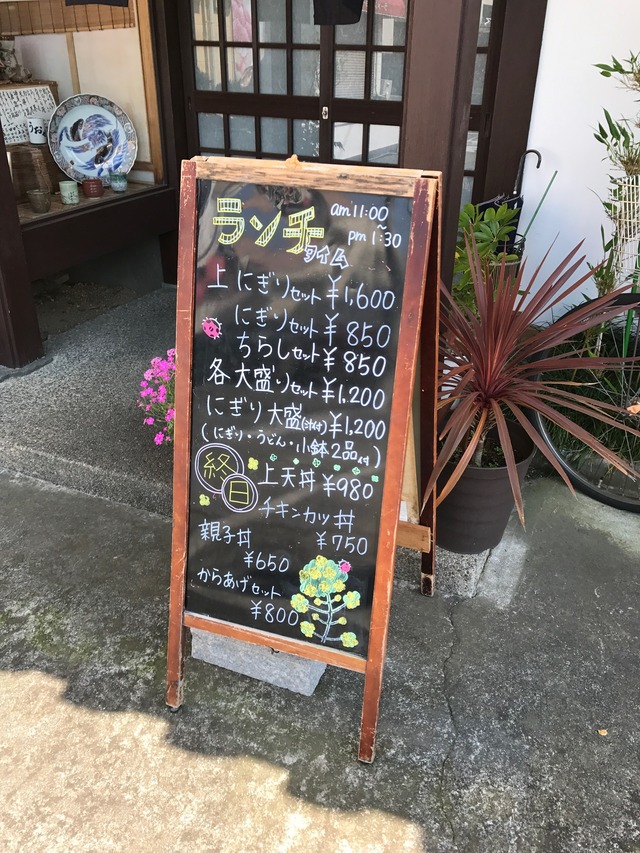 ランチ
タイム
am11:00
~
pm1:30
上 にぎりセット ¥1,600
にぎりセット ¥850
ちらしセット ¥850
各大盛りセット ¥1,200
にぎり大盛(汁付) ¥1,200
(にぎり・うどん・小鉢2品付)
終日
上天丼 ¥980
チキンカツ丼
¥750
親子丼
¥650
からあげセット
¥800